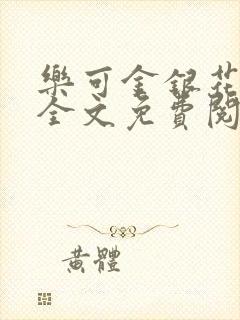 樂可金銀花
全文免費閱
黃體